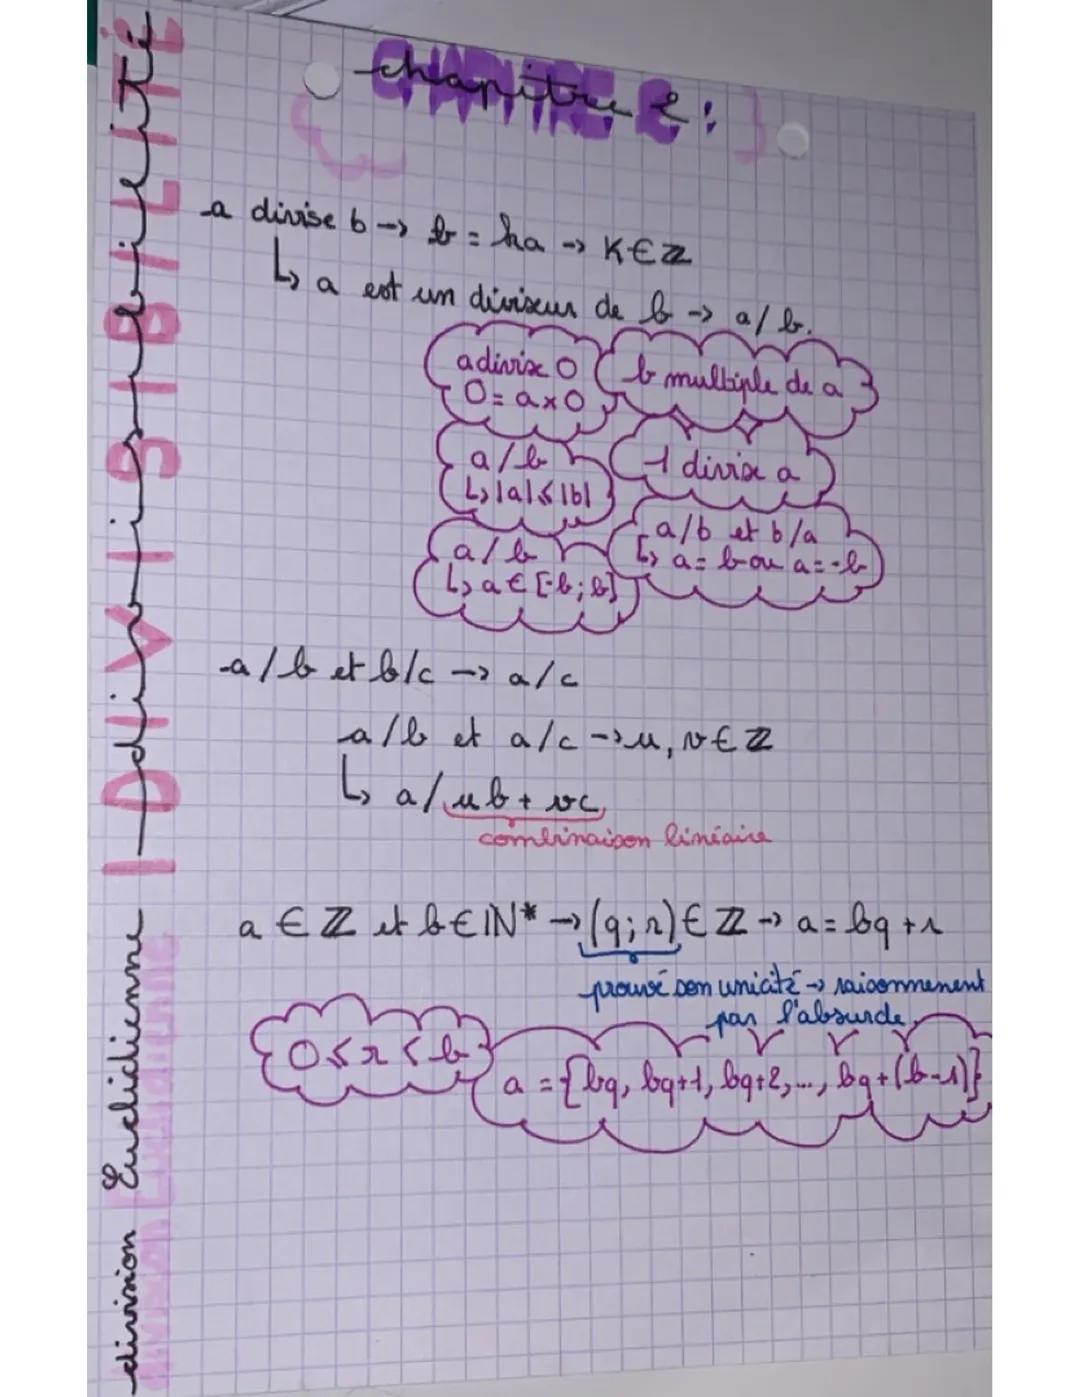 chapitre 2 :
CHAPITRE 2
I Divisibilité
DIVISIBILITÉ
a divise b -> b = ka -> K∈ℤ
↳ a est un diviseur de b -> a/b.
a divise 0
0 = a×0
b multiple de a
a/b
↳ |a|≤|b|
1 divise a
a/b
↳ a ∈ [-b ; b]
a/b et b/a
↳ a = b ou a = -b
a/b et b/c -> a/c
a/b et a/c -> u, v ∈ ℤ
↳ a/ub + vc
combinaison linéaire
division Euclidienne
division Euclidienne
a ∈ ℤ et b ∈ ℕ* -> (q ; r) ∈ ℤ -> a = bq + r
prouvé son unicité -> raisonnement
par l'absurde
0 ≤ r < b
a = {bq, bq+1, bq+2, ..., bq+(b-1)}